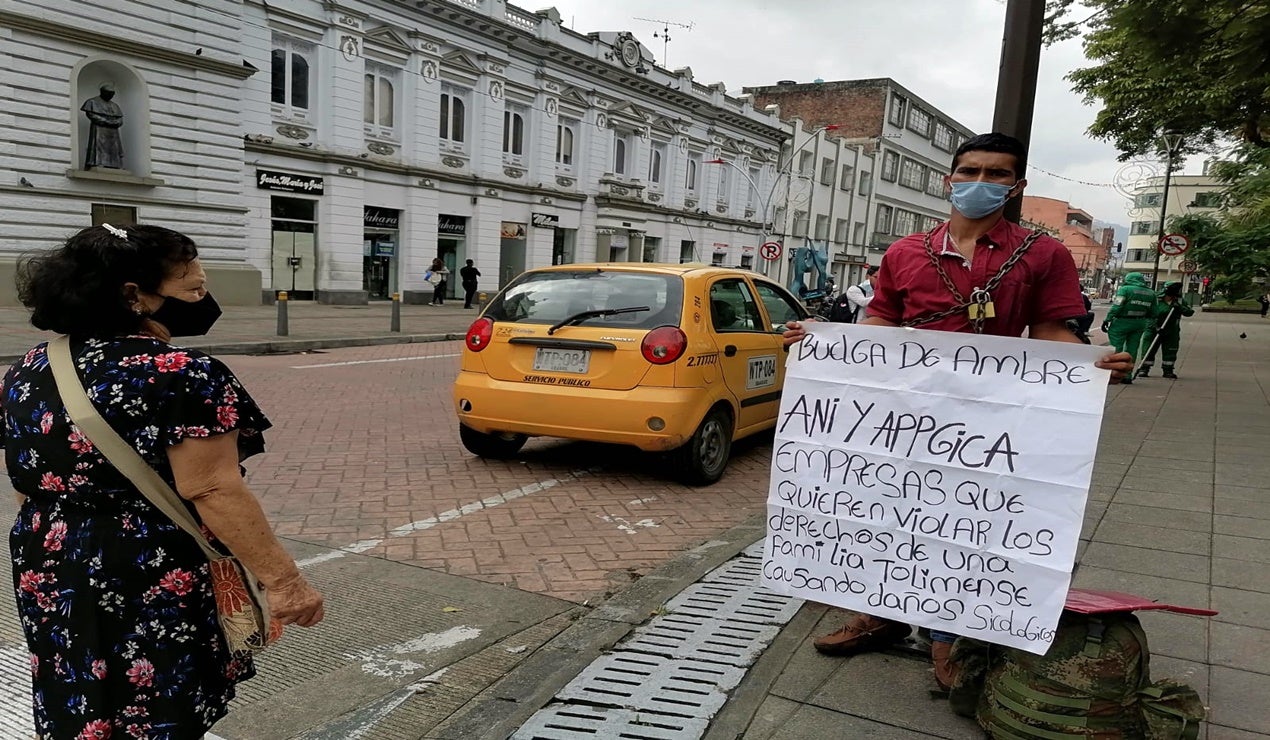 Jesús, María y José
Sahara
Sahara
Mom's
264
CHEVROLET
WTP-084
SERVICIO PUBLICO
2.77777
WTP 084
BUELGA DE AMBRE
ANI Y APPGICA
EMPRESAS QUE
QUIEREN VIOLAR LOS
DERECHOS DE UNA
FAMILIA TOLIMENSE
CAUSANDO DAÑOS SICOLOGICOS